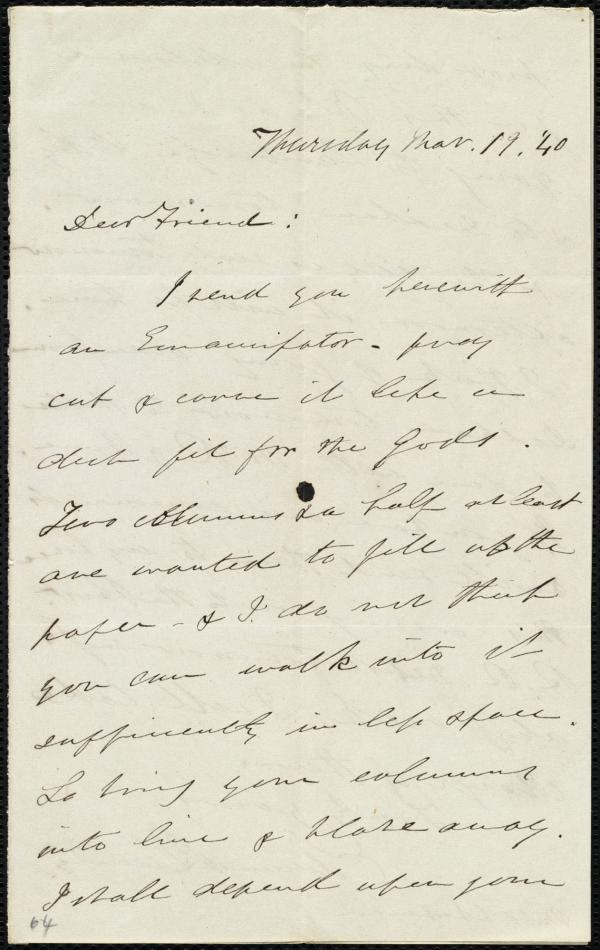 Thursday Nov. 19. '40
Dear Friend:
I send you herewith
an Emancipator - pray
cut & carve it like a
dish fit for the Gods.
Two columns & a half at least
are wanted to fill up the
paper - & I do not think
you can walk into it
sufficiently in less space.
So bring your columns
into line & blaze away.
I shall depend upon your
64